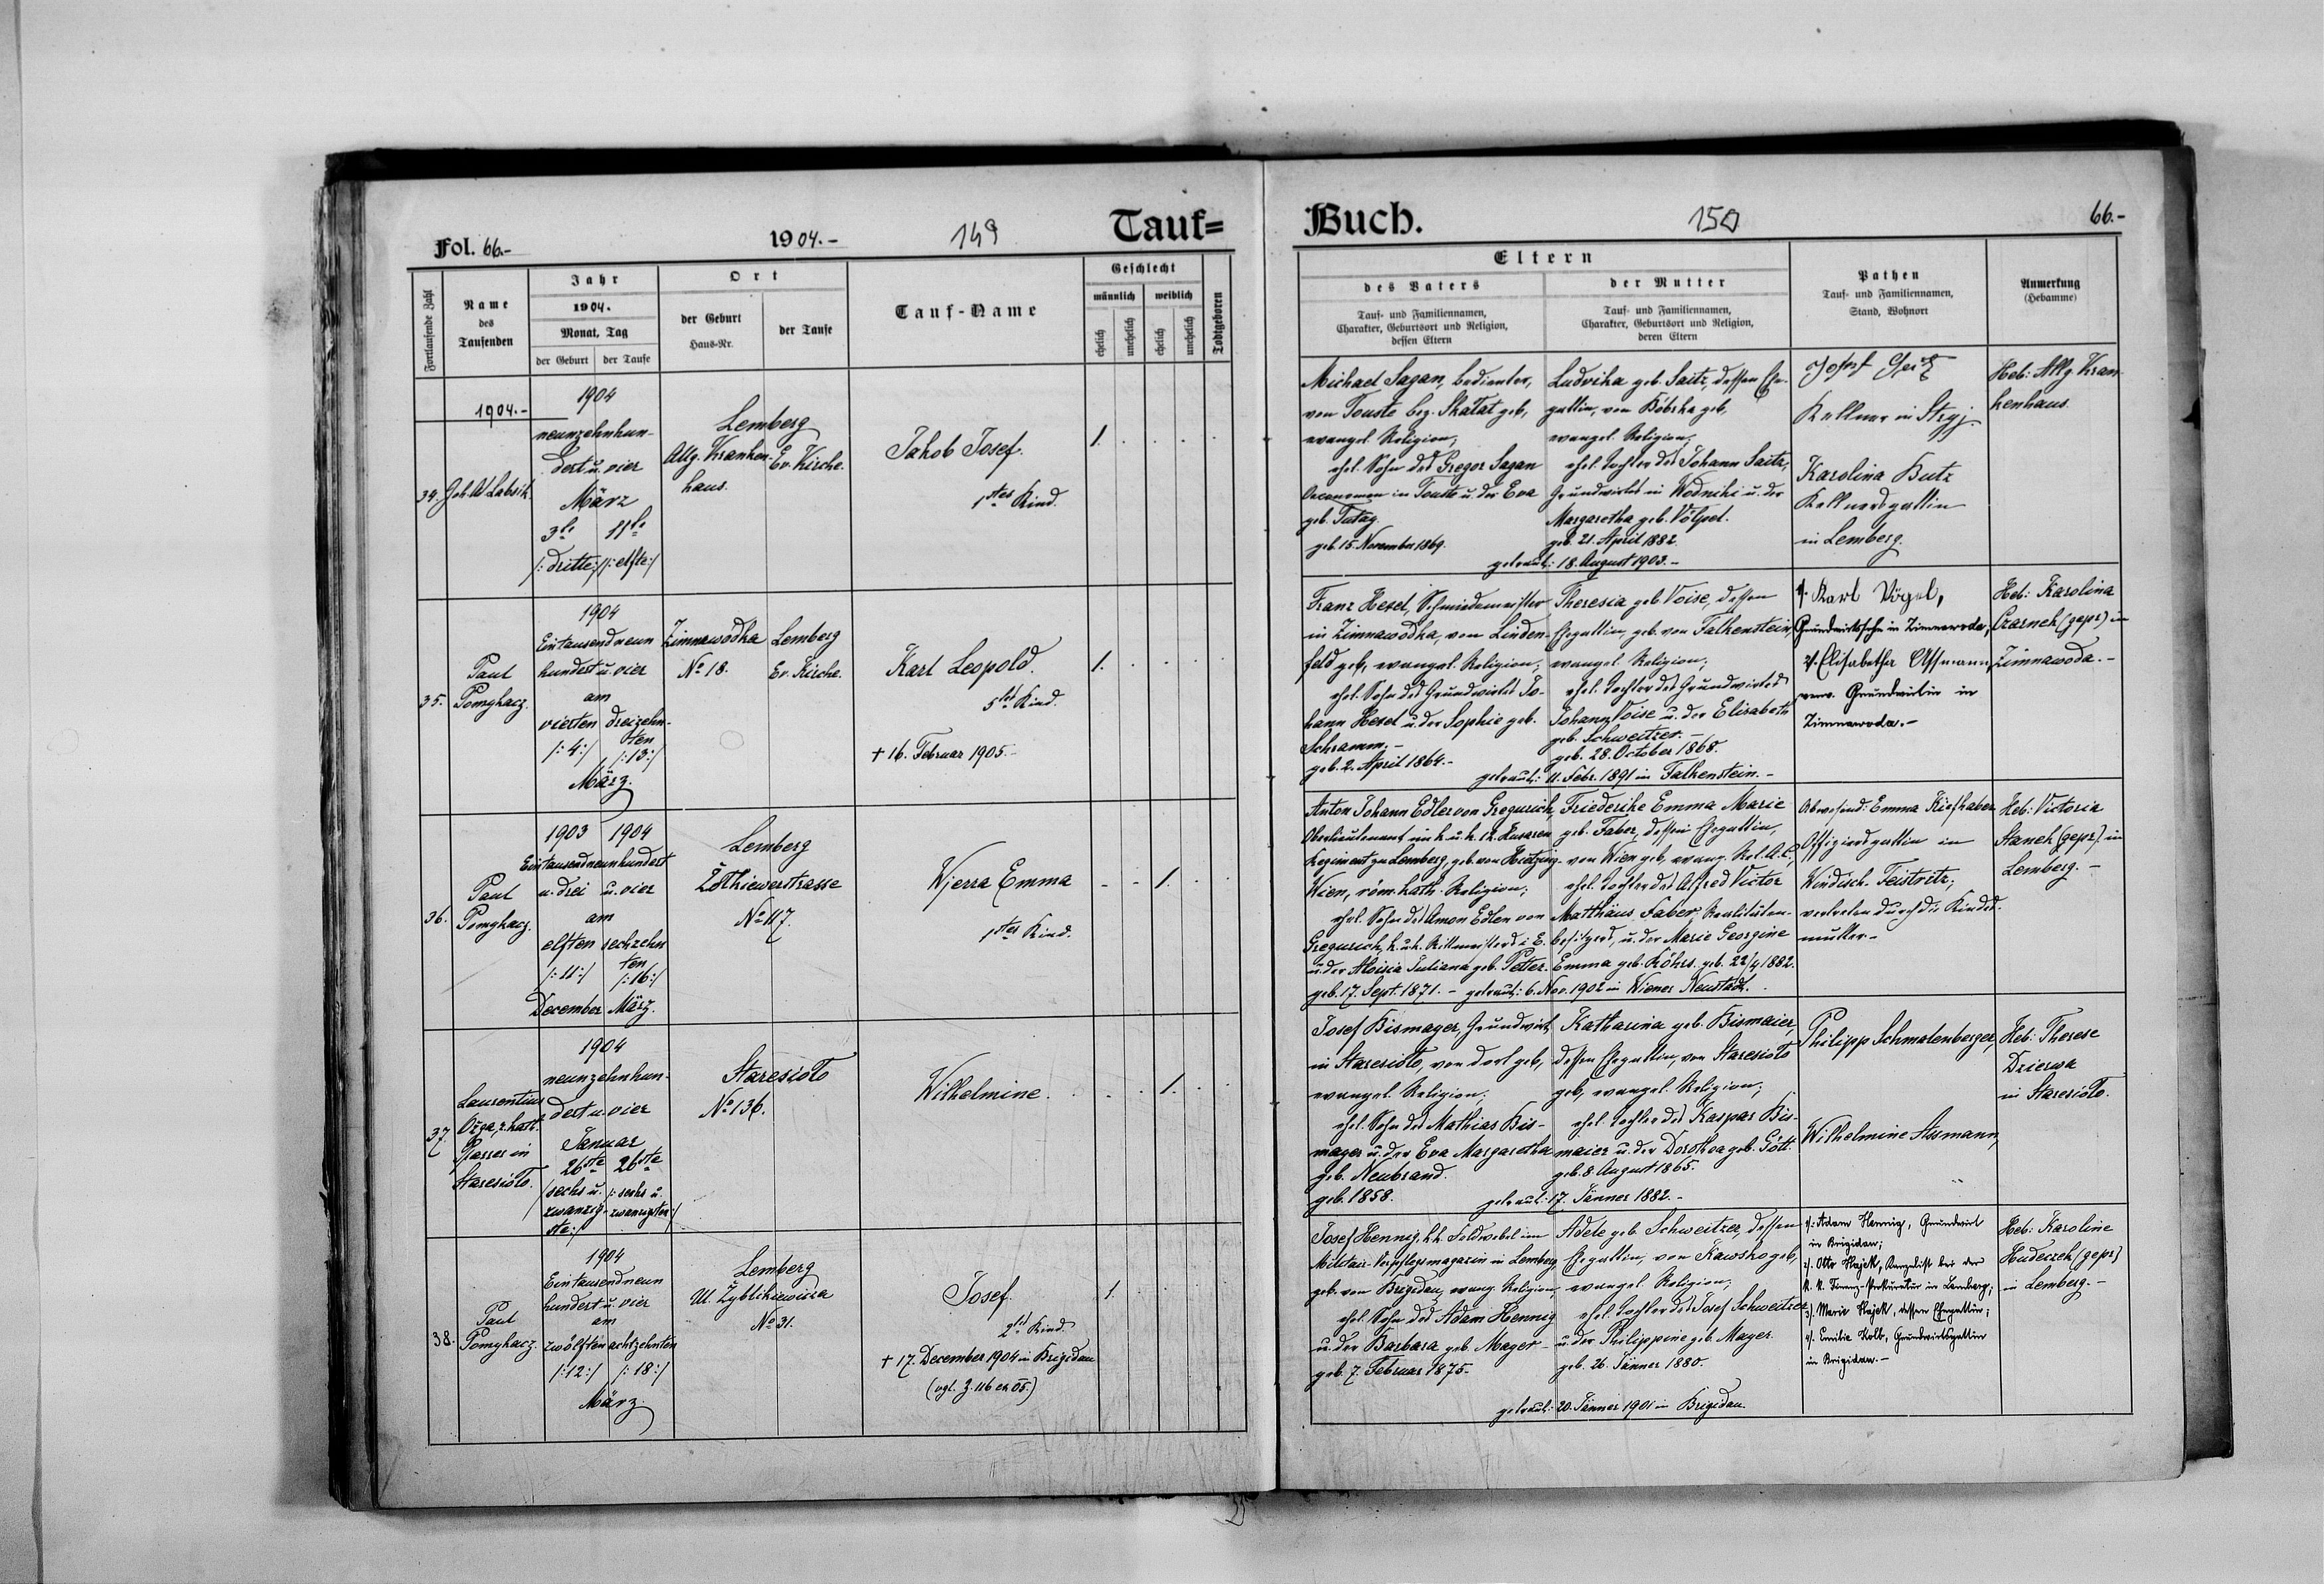 Fol. 66.-
1904.-
149
Tauf=
Fortlaufende Zahl
Name
des
Taufenden
Jahr
1904.
Monat, Tag
der Geburt
der Taufe
Ort
der Geburt
Haus-Nr.
der Taufe
Tauf-Name
Geschlecht
männlich
weiblich
ehelich
unehelich
ehelich
unehelich
Todtgeboren
1904.-
34.
1904
neunzehnhun-
dert u. vier
März
3te 11te
/:dritte:/ /:elfte:/
Lemberg
Allg. Kranken-
haus.
Ev. Kirche.
Jakob Josef.
1tes Kind.
1.
35.
Paul
Pomykacz.
1904
Eintausendneun
hundert u. vier
am
vierten dreizehn-
ten
/:4:/ /:13:/
März.
Zimnawodka
No 18.
Lemberg
Ev. Kirche.
Karl Leopold.
5tes Kind.
+ 16. Februar 1905.-
1.
36.
Paul
Pomykacz.
1903 1904
Eintausendneunhundert
u. drei u. vier
am
elften sechzehn
ten
/:11:/ /:16:/
December März.
Lemberg
Zołkiewerstrasse
No 117.
Wjerra Emma
1tes Kind.
1.
37.
Laurentius
r. kath.
Pfarrer in
Staresioło.
1904
neunzehnhun-
dert u. vier
Januar
26ste 26ste
/sechs u. /:sechs u.
zwanzig- zwanzigsten:/
ste:/
Staresioło
No 136.
Wilhelmine.
1.
38.
Paul
Pomykacz.
1904
Eintausendneun
hundert u. vier
am
zwölften achtzehnten
/:12:/ /:18:/
März.
Lemberg
Ul. Zyblikiewicza
No 31.
Josef.
2tes Kind.
+ 17. December 1904 in Brigidau
(vgl. Z. 116 ex 05.)
1.
Buch.
150
66.-
Eltern
des Vaters
Tauf- und Familiennamen,
Charakter, Geburtsort und Religion,
dessen Eltern
der Mutter
Tauf- und Familiennamen,
Charakter, Geburtsort und Religion,
deren Eltern
Pathen
Tauf- und Familiennamen,
Stand, Wohnort
Anmerkung
(Hebamme)
Michael Sagan, bedienter,
von Touste bez. Skałat geb,
evangel. Religion,
ehel. Sohn des Gregor Sagan
Oeconomen in Touste u. der Eva
geb. Tutag.
geb. 15. November 1869.
Ludvika geb. Saitz, dessen Ehe-
gattin, von Bóbrka geb,
evangel. Religion,
ehel. Tochter des Johann Saitz,
Grundwirtes in Wodniki u. der
Margaretha geb. Völpel.
geb. 21. April 1882.
getraut: 18. August 1903.-
Kellner in Stryj.
Karolina Butz
Kellnersgattin
in Lemberg.
Heb: Allg. Kran
kenhaus.
Franz Hexel, Schmiedemeister
in Zimnawodka, von Linden-
feld geb, evangel. Religion,
ehel. Sohn des Grundwirtes Jo-
hann Hexel u. der Sophie geb.
Schramm.-
geb. 2. April 1864.-
Theresia geb. Voise, dessen
Ehegattin, geb. von Falkenstein,
evangel. Religion;
ehel. Tochter des Grundwirtes
Johann Voise u. der Elisabeth
geb. Schweitzer.-
geb. 28. October 1868.
getraut: 11. Febr. 1891 in Falkenstein.-
1. Karl Vogel,
Grundwirtssohn in Zimnawoda,
2. Elisabetha Assmann,
verw. Grundwirtin in
Zimnawoda.-
Heb: Karolina
Czarnek (gepr) in
Zimnawoda.-
Anton Johann Edler von Gregurich,
Oberlieutenant im k. u. k. 12. Husaren
Regiment zu Lemberg, geb. von Hietzing-
Wien, röm. kath. Religion;
ehel. Sohn des Amon Edlen von
Gregurich, k. u. k. Rittmeisters i. E.
u. der Aloisia Juliana geb. Petter.
geb. 17. Sept. 1871.- getraut: 6. Nov. 1902 in Wiener Neustadt.
Friederike Emma Marie
geb. Faber, dessen Ehegattin,
von Wien geb, evang. Rel. A.C,
ehel. Tochter des Alfred Victor
Matthäus Faber, Realitäten-
besitzers, u. der Marie Georgine
Emma geb. Köhrs. geb. 22/4 1882.
Abwesend: Emma Kiefhaber,
Offiziersgattin in
Windisch-Feistritz;
vertreten durch die Kindes-
mutter.-
Heb: Victoria
Stanek (gepr) in
Lemberg.-
Josef Bismayer, Grundwirt
in Staresioło, von dort geb,
evangel. Religion;
ehel. Sohn des Mathias Bis-
mayer u. der Eva Margaretha
geb. Neubrand.
geb. 1858.
Katharina geb. Bismaier,
dessen Ehegattin, von Staresioło
geb, evangel. Religion;
ehel. Tochter des Kaspar Bis-
maier u. der Dorothea geb. Gött.
geb. 8. August 1865.
getraut: 17. Jänner 1882.-
Philipp Schmalenberger,
Wilhelmine Assmann,
Heb: Therese
Dzierwa
in Staresioło.
Josef Hennig, k.k. Feldwebel im
Militair-Verpflegsmagazin in Lemberg,
geb. von Brigidau, evang. Religion,
ehel. Sohn des Adam Hennig
u. der Barbara geb. Mayer-
geb. 7. Februar 1875.
Adele geb. Schweitzer, dessen
Ehegattin, von Kawsko geb,
evangel. Religion;
ehel. Tochter des Josef Schweitzer
u. der Philippine geb. Mayer.
geb. 26. Jänner 1880.
getraut: 20. Jänner 1901 in Brigidau.
1. Adam Hennig, Grundwirt
in Brigidau;
2. Otto Hajek, Kanzelist bei der
k. k. Finanz-Prokuratur in Lemberg;
3. Marie Hajek, dessen Ehegattin;
4. Emilie Kolb, Grundwirtsgattin
in Brigidau.-
Heb: Karoline
Hudeczek (gepr)
in Lemberg.-